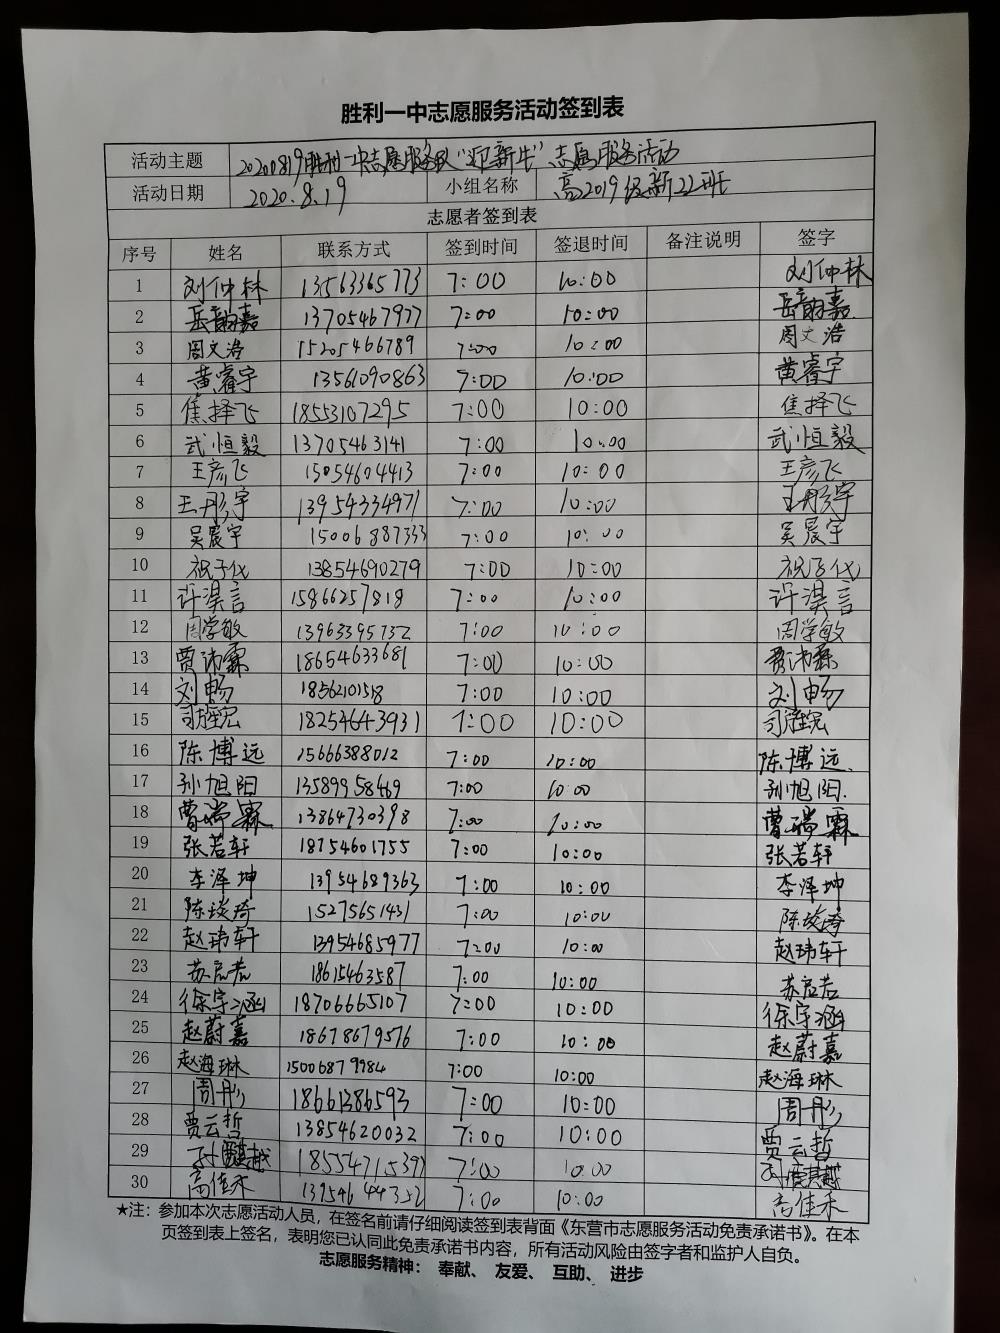 胜利一中志愿服务活动签到表
活动主题 20200819胜利一中志愿服务队“迎新生”志愿服务活动
活动日期 2020.8.19 小组名称 高2019级新22班
志愿者签到表
序号 姓名 联系方式 签到时间 签退时间 备注说明 签字
1 刘仲林 13563365773 7:00 10:00 刘仲林
2 岳韵嘉 13705467977 7:00 10:00 岳韵嘉
3 周文浩 15205466789 7:00 10:00 周文浩
4 黄睿宇 13561090863 7:00 10:00 黄睿宇
5 焦择飞 18553107295 7:00 10:00 焦择飞
6 武恒毅 13705463141 7:00 10:00 武恒毅
7 王彦飞 15054604413 7:00 10:00 王彦飞
8 王彤宇 13954334971 7:00 10:00 王彤宇
9 吴宸宇 15006887333 7:00 10:00 吴宸宇
10 祝子代 13854690279 7:00 10:00 祝子代
11 许淏言 15866257818 7:00 10:00 许淏言
12 周学敏 13963395732 7:00 10:00 周学敏
13 贾沛霖 18654633681 7:00 10:00 贾沛霖
14 刘畅 18562101518 7:00 10:00 刘畅
15 18254643931 7:00 10:00
16 陈博远 15666388012 7:00 10:00 陈博远
17 孙旭阳 13589958469 7:00 10:00 孙旭阳
18 曹瑞霖 13864730398 7:00 10:00 曹瑞霖
19 张若轩 18754601755 7:00 10:00 张若轩
20 李泽坤 13954689363 7:00 10:00 李泽坤
21 陈琰琦 15275651431 7:00 10:00 陈琰琦
22 赵玮轩 13954685977 7:00 10:00 赵玮轩
23 苏启若 18615463587 7:00 10:00 苏启若
24 徐宇涵 18706665107 7:00 10:00 徐宇涵
25 赵蔚嘉 18678679576 7:00 10:00 赵蔚嘉
26 赵海琳 15006879984 7:00 10:00 赵海琳
27 周彤 18661386593 7:00 10:00 周彤
28 贾云哲 13854620032 7:00 10:00 贾云哲
29 孙麒越 18554715397 7:00 10:00 孙麒越
30 高佳禾 13954644352 7:00 10:00 高佳禾
★注：参加本次志愿活动人员，在签名前请仔细阅读签到表背面《东营市志愿服务活动免责承诺书》。在本
页签到表上签名，表明您已认同此免责承诺书内容，所有活动风险由签字者和监护人自负。
志愿服务精神： 奉献、 友爱、 互助、 进步